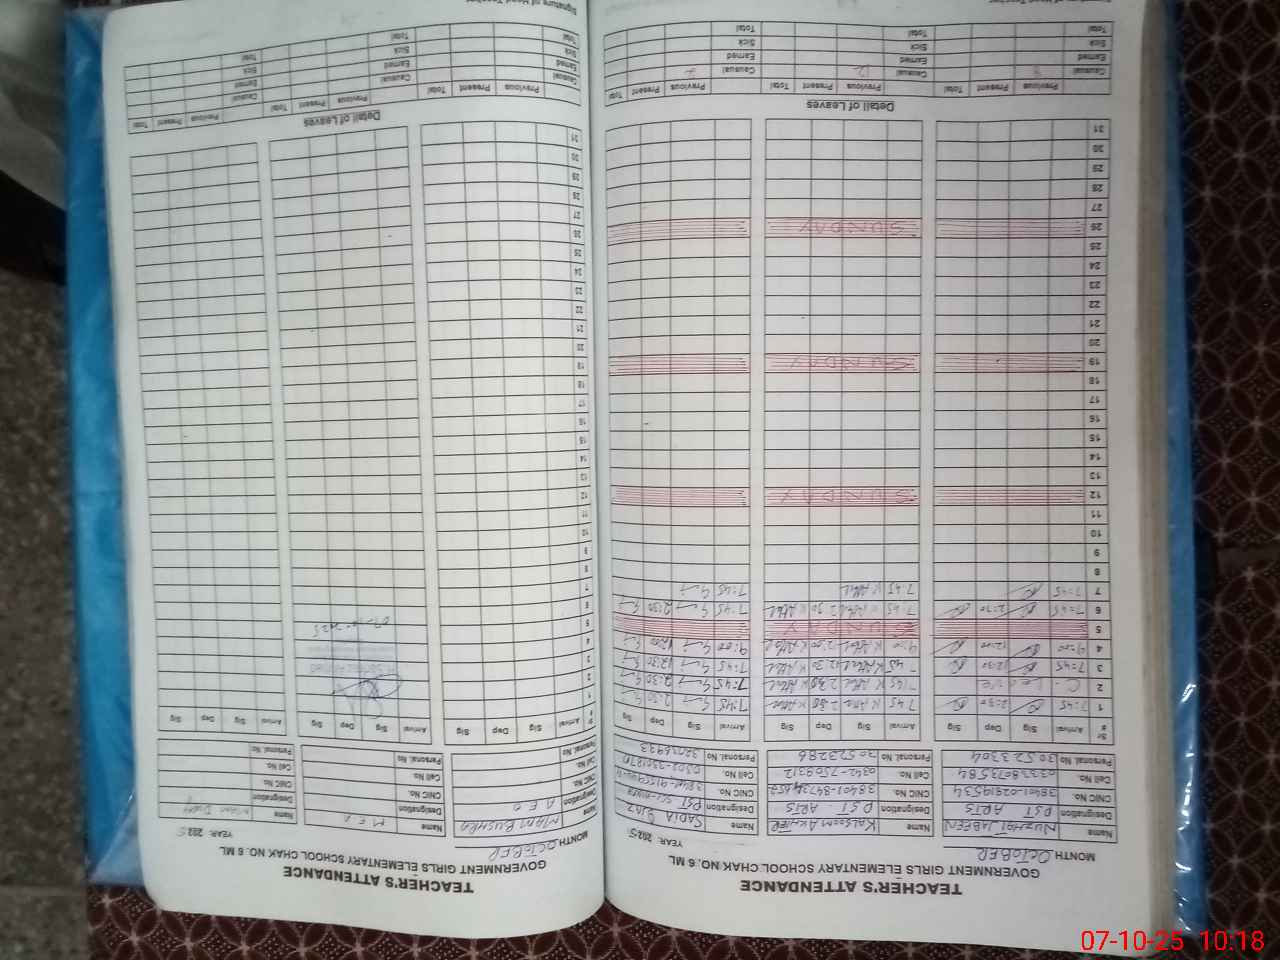 TEACHER'S ATTENDANCE
GOVERNMENT GIRLS ELEMENTARY SCHOOL CHAK NO. 6 ML
MONTH OCTOBER YEAR: 2025
Name NUZHAT JABEEN Name KALSOOM AKHTER Name SADIA
Designation PST ARTS Designation PST. ARTS Designation PST
CNIC No. 38401-0219534 CNIC No. CNIC No.
Cell No. 03338073584 Cell No. 0342-7508312 Cell No.
Personal. No 30523304 Personal. No 30523286 Personal. No
Sr # Arrival Sig Dep Sig Arrival Sig Dep Sig Arrival Sig Dep Sig
1 7:45 2:30 7 45 2 30 7:45 2:30
2 C. Leave 7:45 2 30 7:45 2:30
3 7:45 12:30 7 45 12 30 7:45 12:30
4 9:00 12:00 9:00 12:00 9:00 12:00
5 SUNDAY
6 7:45 2:30 7 45 2 30 7:45 2:30
7 7:45 7 45 7:45
8
9
10
11
12 SUNDAY
13
14
15
16
17
18
19 SUNDAY
20
21
22
23
24
25
26 SUNDAY
27
28
29
30
31
Detail of Leaves
Previous Present Total Previous Present Total Previous Present Total
Causual Causual 12 Causual
Earned Earned Earned
Sick Sick Sick
Total Total Total
Signature of Head Teacher
TEACHER'S ATTENDANCE
GOVERNMENT GIRLS ELEMENTARY SCHOOL CHAK NO. 6 ML
MONTH OCTOBER YEAR: 2025
Name MAM BUSHRA Name Name MAM
Designation A.E.O Designation M.E.A Designation
CNIC No. CNIC No. CNIC No.
Cell No. Cell No. Cell No.
Personal. No Personal. No Personal. No
Sr # Arrival Sig Dep Sig Arrival Sig Dep Sig Arrival Sig Dep Sig
1
2
3
4
5
6
7
8
9
10
11
12
13
14
15
16
17
18
19
20
21
22
23
24
25
26
27
28
29
30
31
Detail of Leaves
Previous Present Total Previous Present Total Previous Present Total
Causual Causual Causual
Earned Earned Earned
Sick Sick Sick
Total Total Total
Signature of Head Teacher
07-10-25 10:18